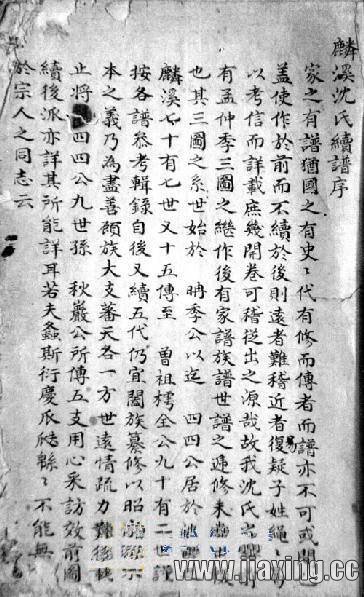 麟溪沈氏續譜序
家之有譜猶國之有史〻代有修而傳者而譜亦不可或間
蓋使作於前而不續於後則遠者難稽近者復易疑子姓繩〻
以考信而詳載庶幾開卷可稽從出之源哉故我沈氏
有孟仲季三圖之繼作後有家譜族譜世譜之遞修來
也其三圖之系世始於 明季公以迄 四四公居於
麟溪七十有七世又十五傳至 曾祖樗全公九十有二世謹
按各譜參考輯錄自後又續五代仍宜闔族纂修以昭
本之義乃為盡善顧族大支蕃天各一方世遠情疏力難
止將 四四公九世孫 秋巖公所傳五支用心采訪效前圖
續後派亦詳其所能詳耳若夫螽斯衍慶瓜瓞緜〻不能無
於宗人之同志云
www.jiaxing.cc